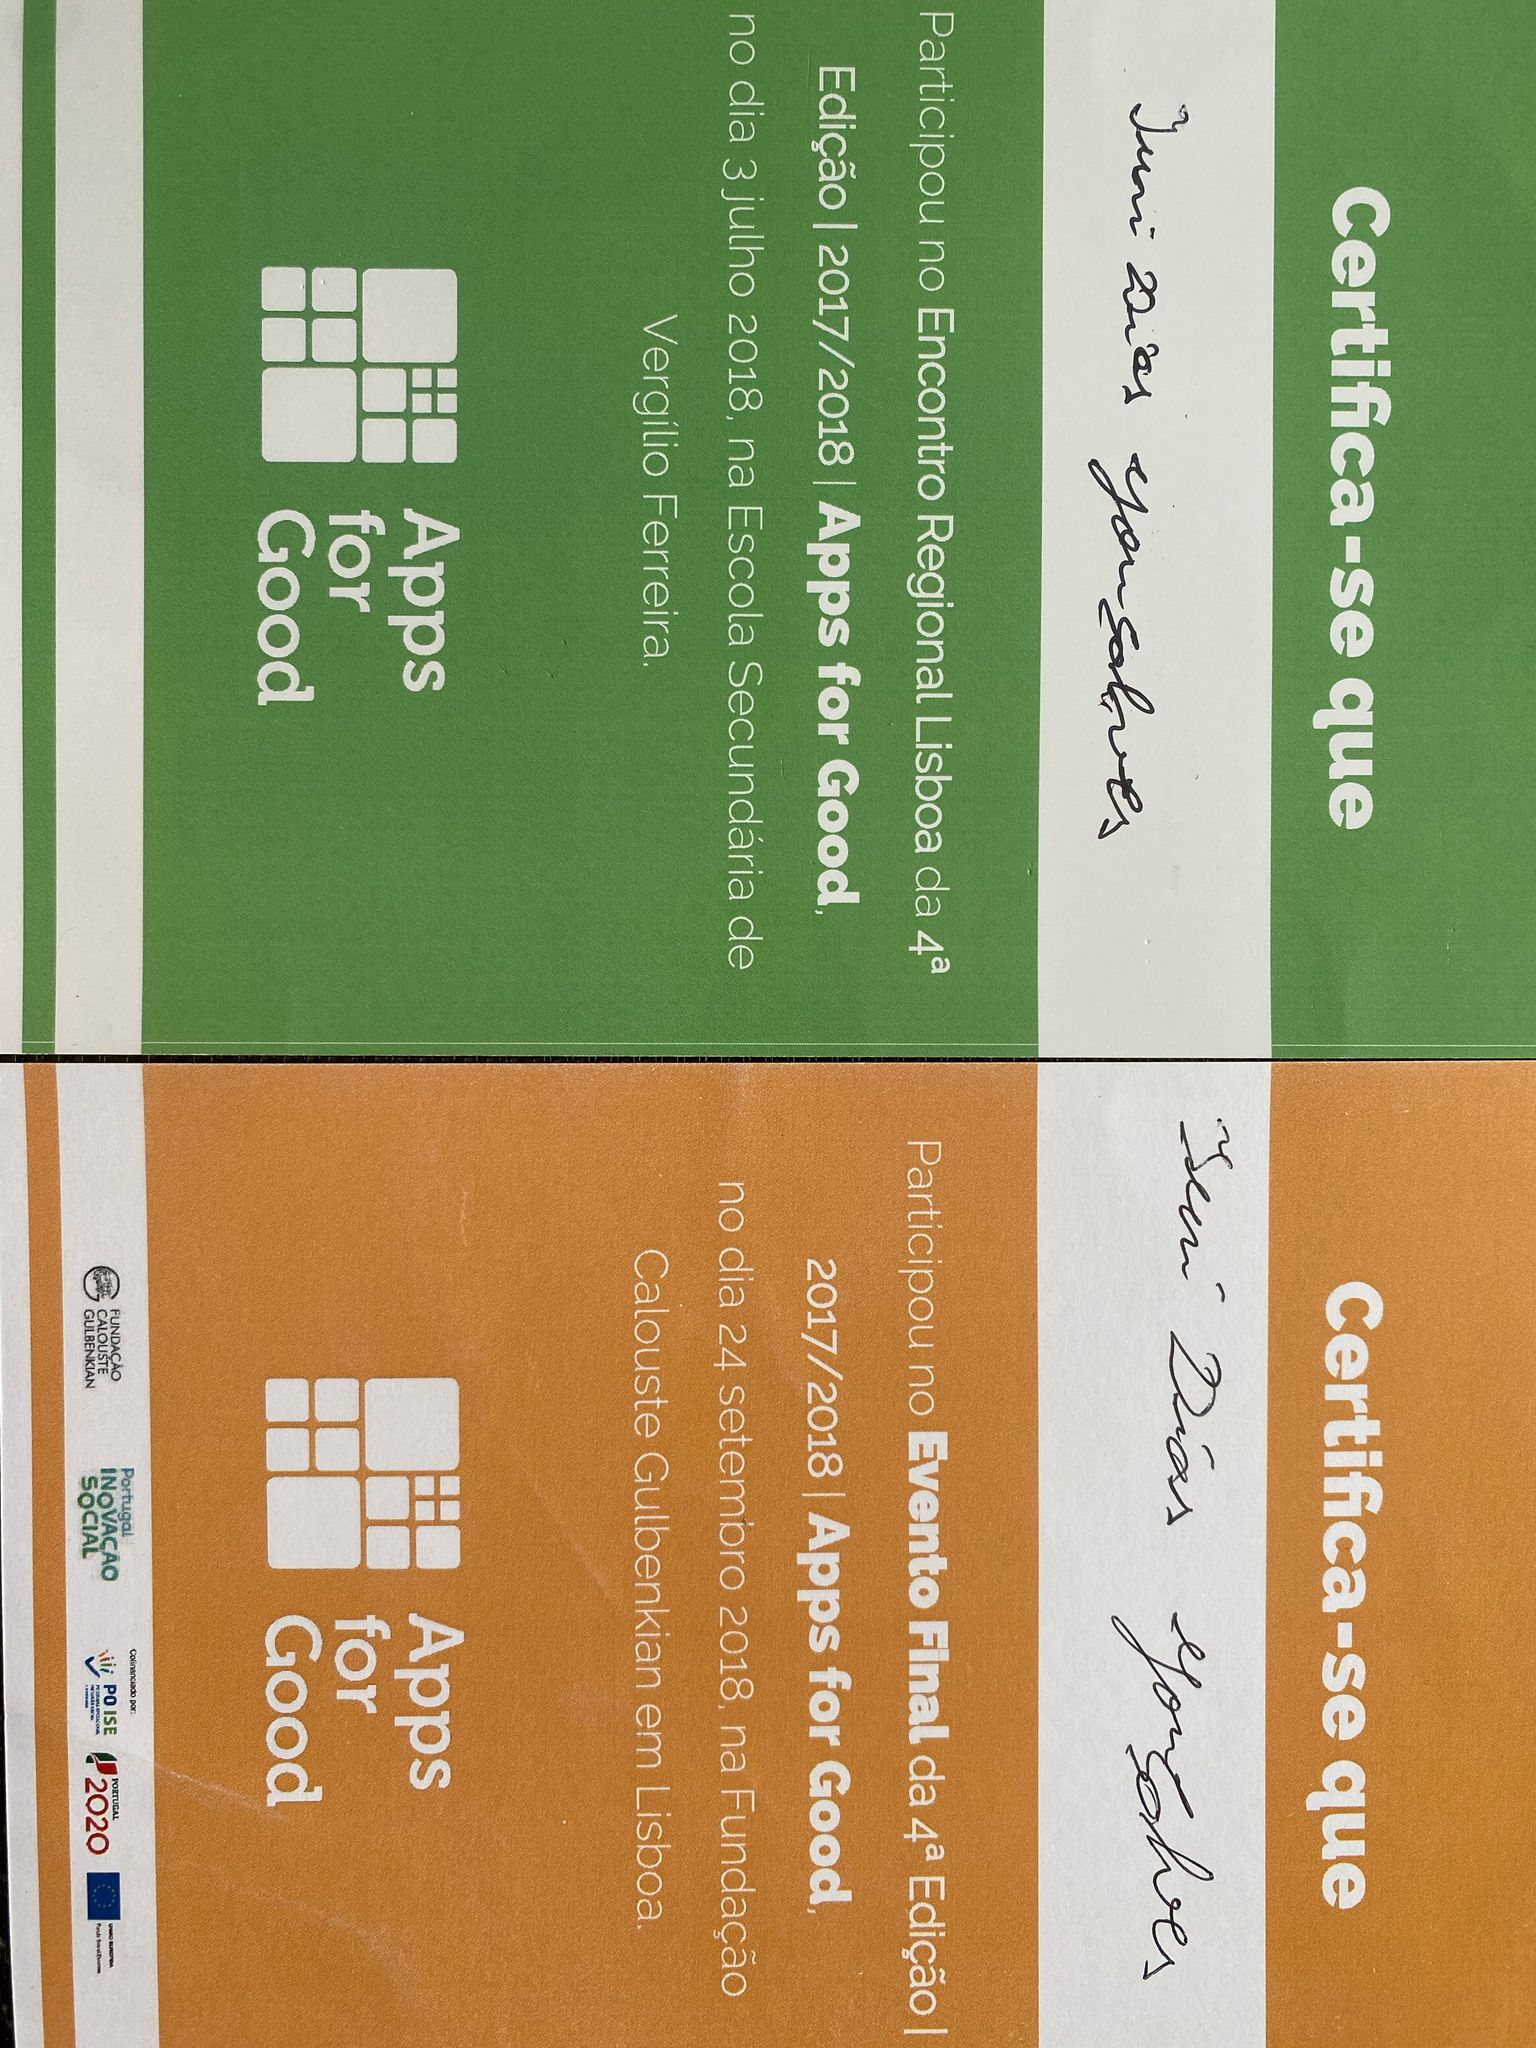 Certifica-se que
Iuri Dias Gonçalves
Participou no Encontro Regional Lisboa da 4ª
Edição | 2017/2018 | Apps for Good,
no dia 3 julho 2018, na Escola Secundária de
Vergílio Ferreira.
Apps
for
Good
Certifica-se que
Iuri Dias Gonçalves
Participou no Evento Final da 4ª Edição |
2017/2018 | Apps for Good,
no dia 24 setembro 2018, na Fundação
Calouste Gulbenkian em Lisboa.
Apps
for
Good
FUNDAÇÃO
CALOUSTE
GULBENKIAN
Portugal
INOVAÇÃO
SOCIAL
Cofinanciado por:
PO ISE
PORTUGAL
2020
UNIÃO EUROPEIA